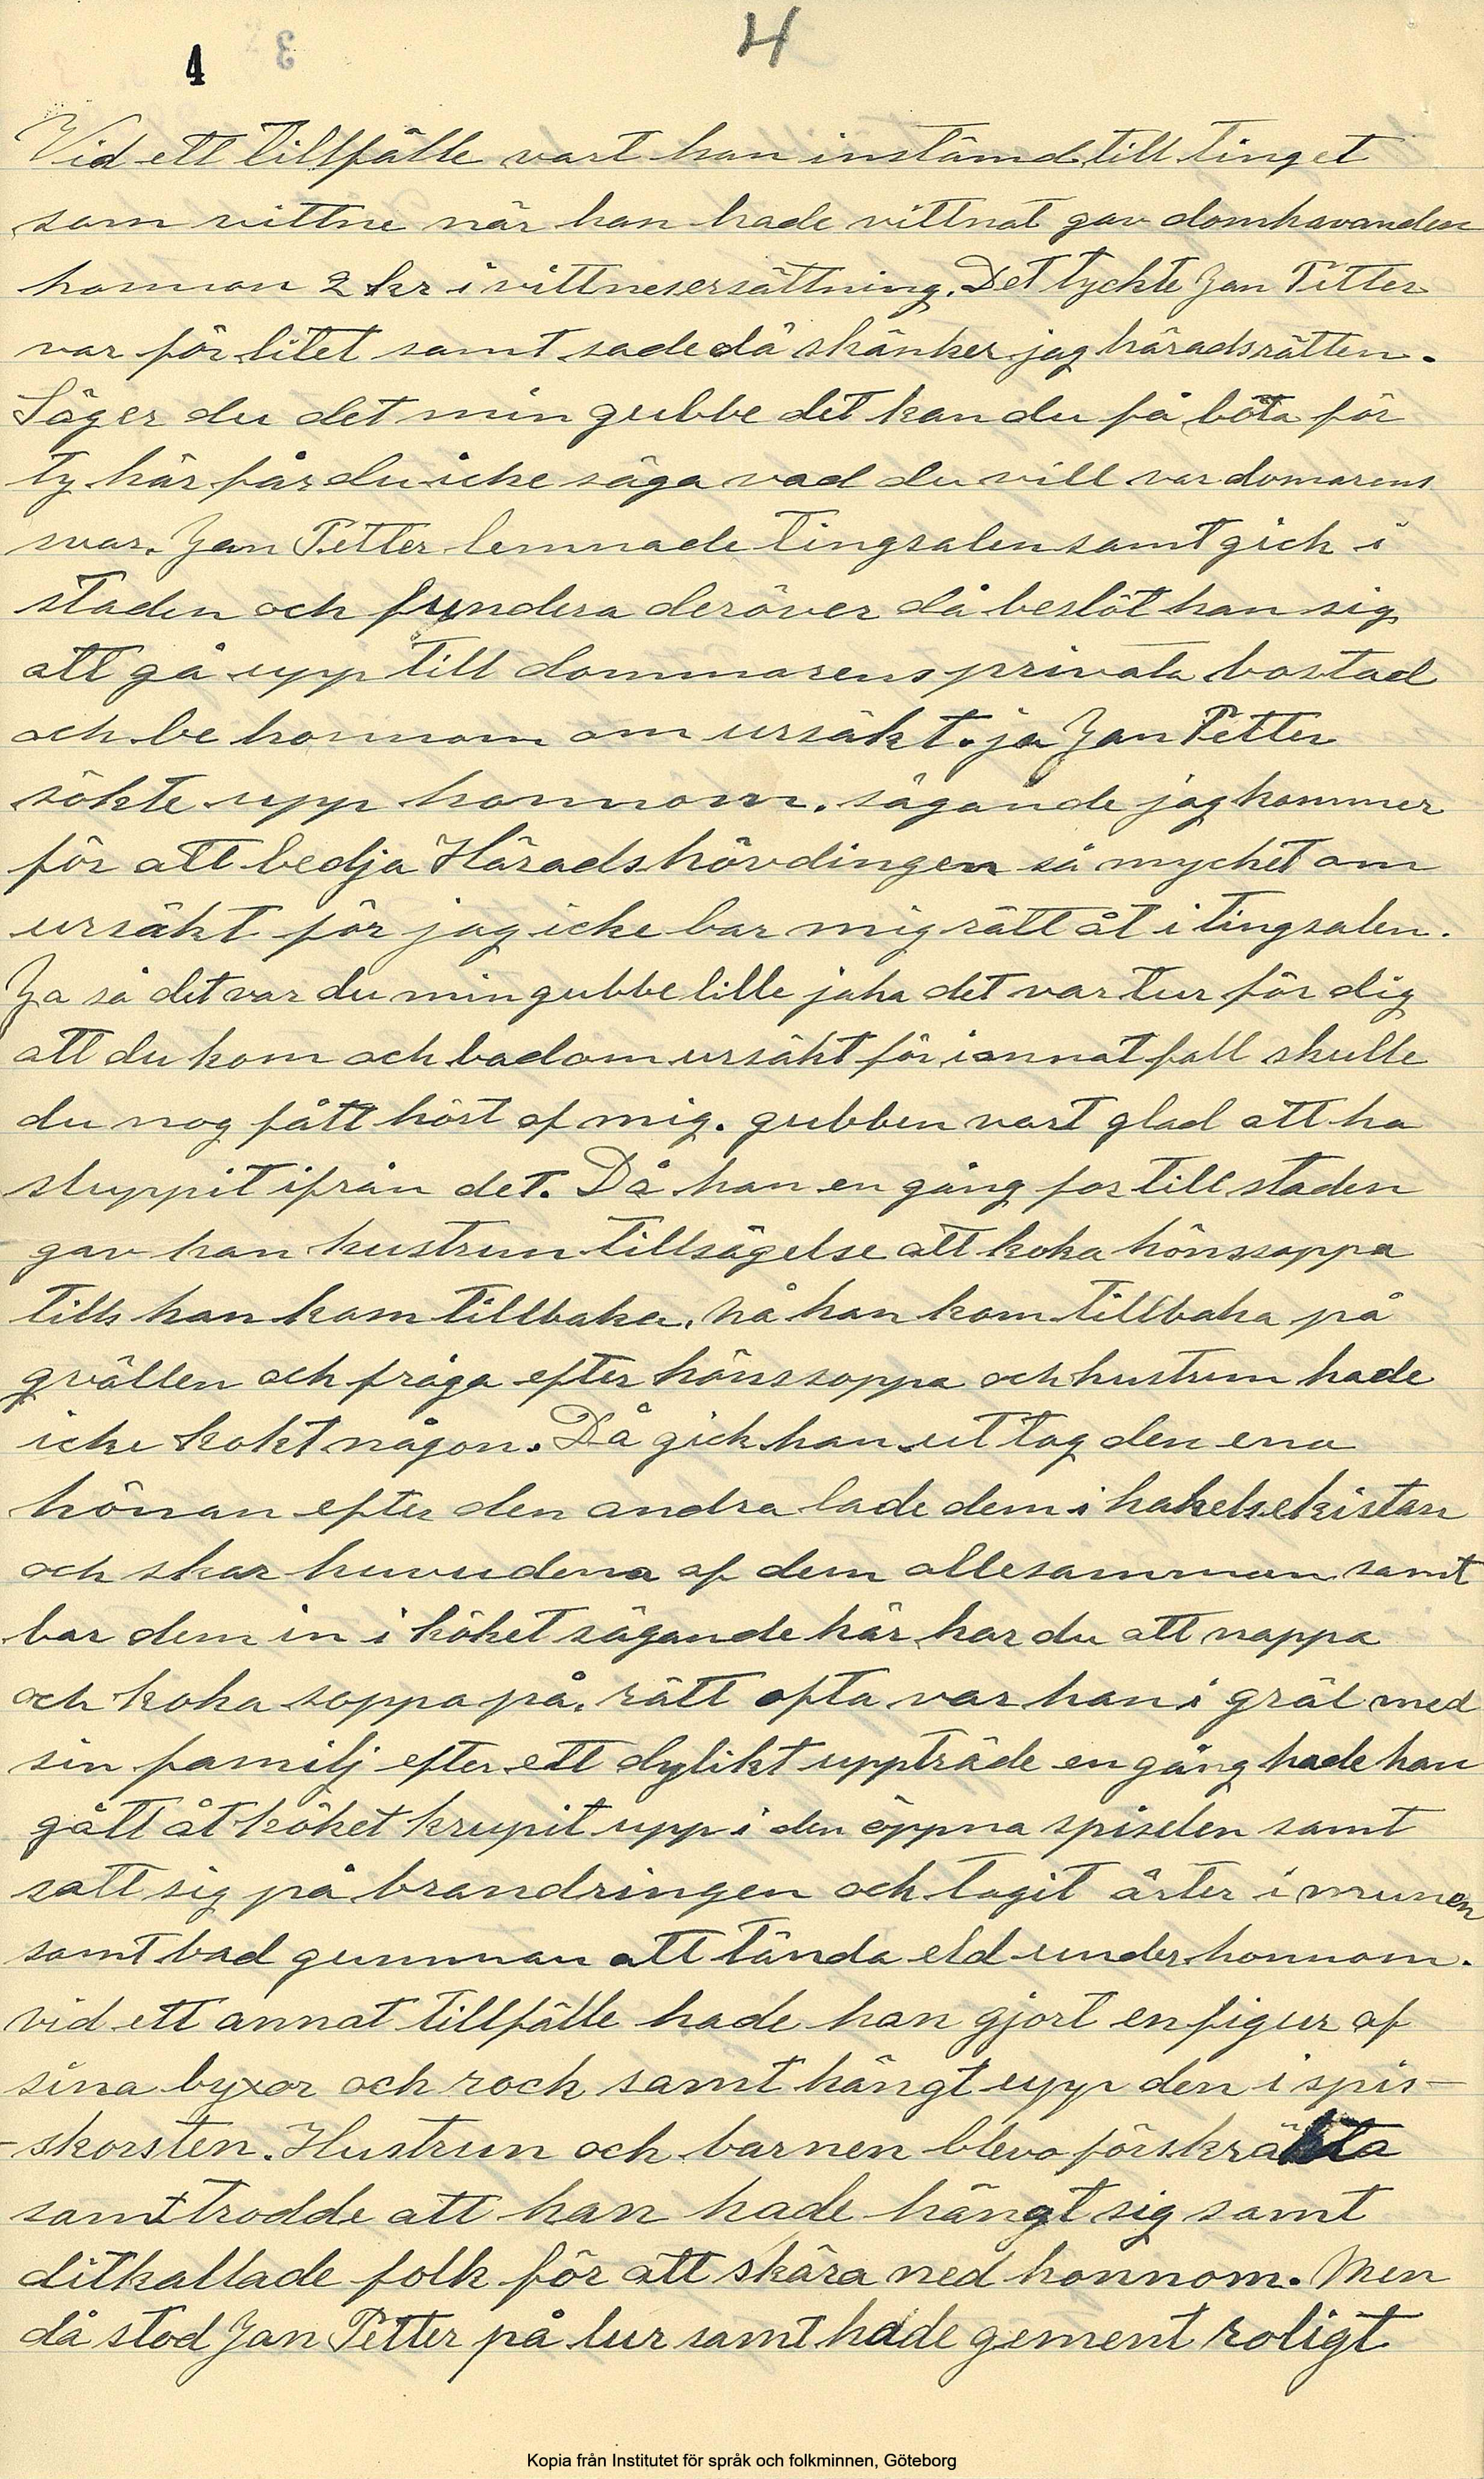 4
4
Vid ett tillfälle vart han instämd till tinget
som vittne när han hade vittnat gav domhavanden
honnon 2 kr i vittnesersättning. Det tyckte Jan Petter
var för litet samt sade då skänker jag häradsrätten.
Säger du det min gubbe det kan du få böta för
ty här får du icke säga vad du vill var domarens
svar. Jan Petter lemnade tingsalen samt gick i
staden och fundera deröver då beslöt han sig
att gå upp till dommarens privata bostad
och be honnom om ursäkt. ja Jan Petter
sökte upp honnom. sägande jag kommer
för att bedja Häradshövdingen så mycket om
ursäkt för jag icke bar mig rätt åt i tingsalen.
Ja så det var du min gubbe lille jaha det var tur för dig
att du kom och bad om ursäkt för i annat fall skulle
du nog fått hört af mig. gubben vart glad att ha
sluppit ifrån det. Då han en gång for till staden
gav han hustrun tillsägelse att koka hönssoppa
tills han kom tillbaka. nå han kom tillbaka på
qvällen och fråga efter hönssoppa och hustrun hade
icke kokt någon. Då gick han ut tog den ena
hönan efter den andra lade dem i hakelsekistan
och skar huvudena af dem allesamman samt
bar dem in i köket sägande här har du att nappa
och koka soppa på. rätt ofta var han i gräl med
sin familj efter ett dylikt uppträde en gång hade han
gått åt köket krupit upp i den öppna spiselen samt
satt sig på brandringen och tagit ärter i munen
samt bad gumman att tända eld under honnom.
vid ett annat tillfälle hade han gjort en figur af
sina byxor och rock samt hängt upp den i spis-
-skorsten. Hustrun och barnen blevo förskräkta
samt trodde att han hade hängt sig samt
ditkallade folk för att skära ned honnom. Men
då stod Jan Petter på lur samt hade gement roligt
Kopia från Institutet för språk och folkminnen, Göteborg